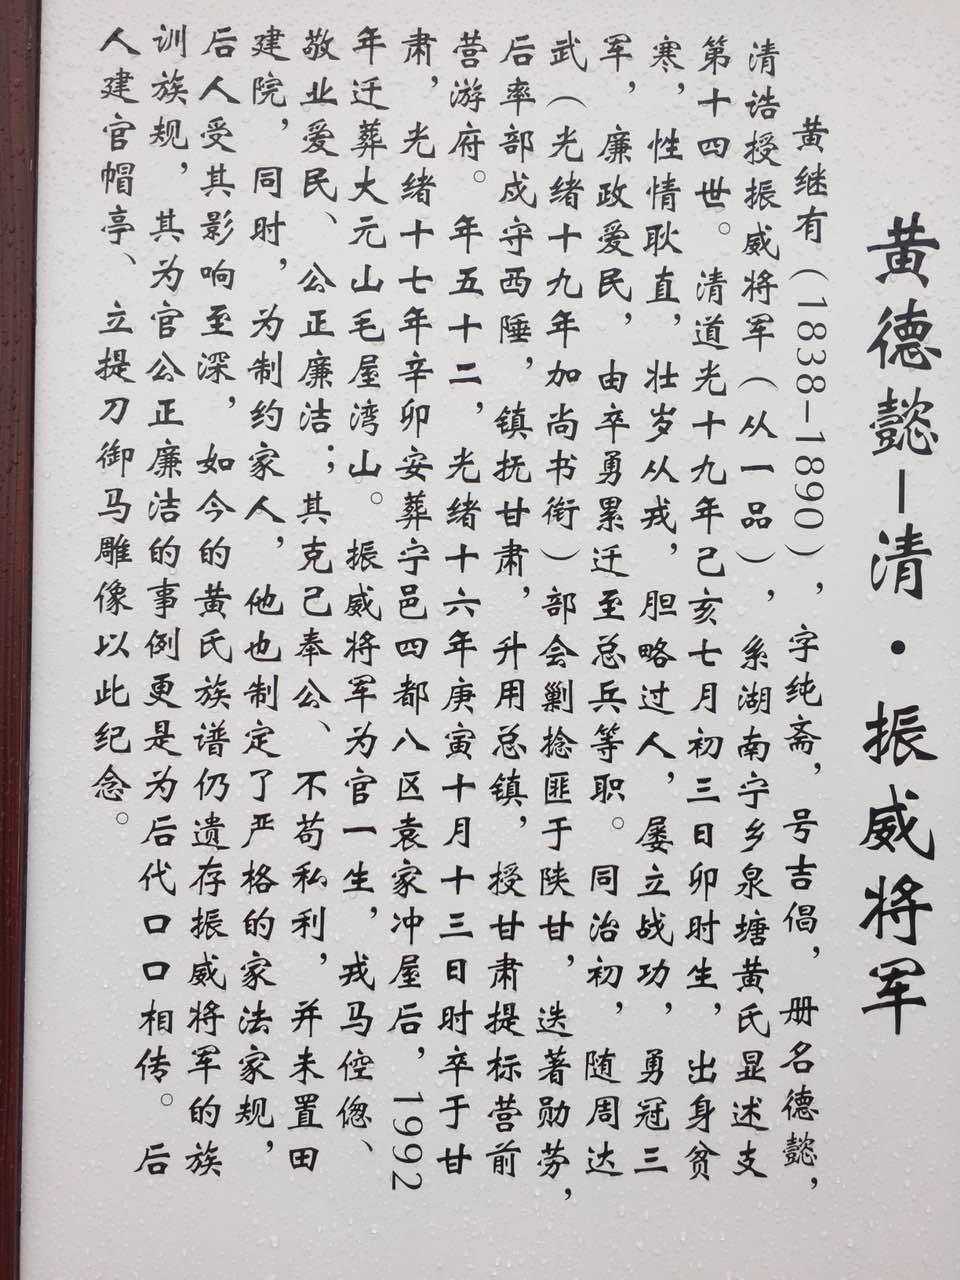 黄德懿—清·振威将军
黄继有（1838-1890），字纯斋，号吉倡，册名德懿，
清诰授振威将军（从一品），系湖南宁乡泉塘黄氏显述支
第十四世。清道光十九年己亥七月初三日卯时生，出身贫
寒，性情耿直，壮岁从戎，胆略过人，屡立战功，勇冠三
军，廉政爱民，由卒勇累迁至总兵等职。同治初，随周达
武（光绪十九年加尚书衔）部会剿捻匪于陕甘，迭著勋劳，
后率部戍守西陲，镇抚甘肃，升用总镇，授甘肃提标营前
营游府。年五十二，光绪十六年庚寅十月十三日时卒于甘
肃，光绪十七年辛卯安葬宁邑四都八区袁家冲屋后，1992
年迁葬大元山毛屋湾山。振威将军为官一生，戎马倥偬、
敬业爱民、公正廉洁；其克己奉公、不苟私利，并未置田
建院，同时，为制约家人，他也制定了严格的家法家规，
后人受其影响至深，如今的黄氏族谱仍遗存振威将军的族
训族规，其为官公正廉洁的事例更是为后代口口相传。后
人建官帽亭、立提刀御马雕像以此纪念。